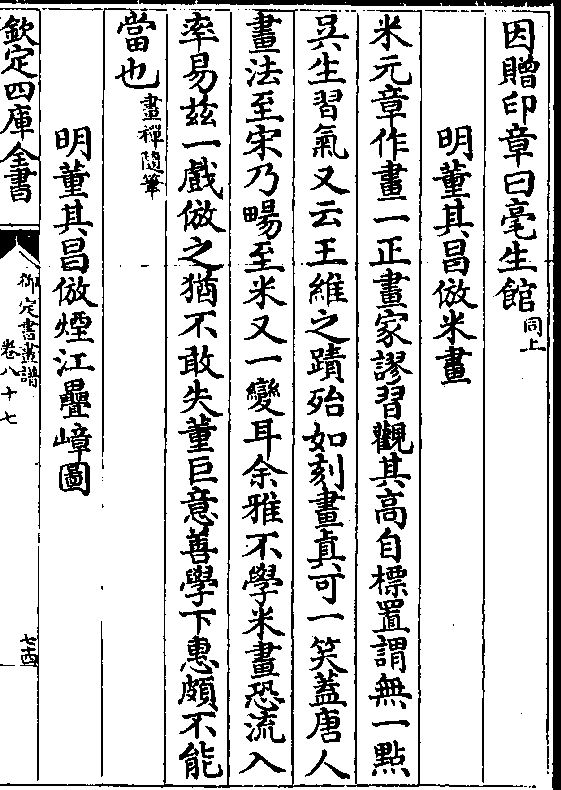 因贈印章曰毫生館同上
明董其昌倣米畫
米元章作畫一正畫家謬習觀其高自標置謂無一點
吳生習氣又云王維之蹟殆如刻畫真可一笑蓋唐人
畫法至宋乃暢至米又一變耳余雅不學米畫恐流入
率易茲一戲倣之猶不敢失董巨意善學下惠頗不能
當也畫禪隨筆
明董其昌倣煙江疊嶂圖
欽定四庫全書
御定書畫譜
卷八十七
七四